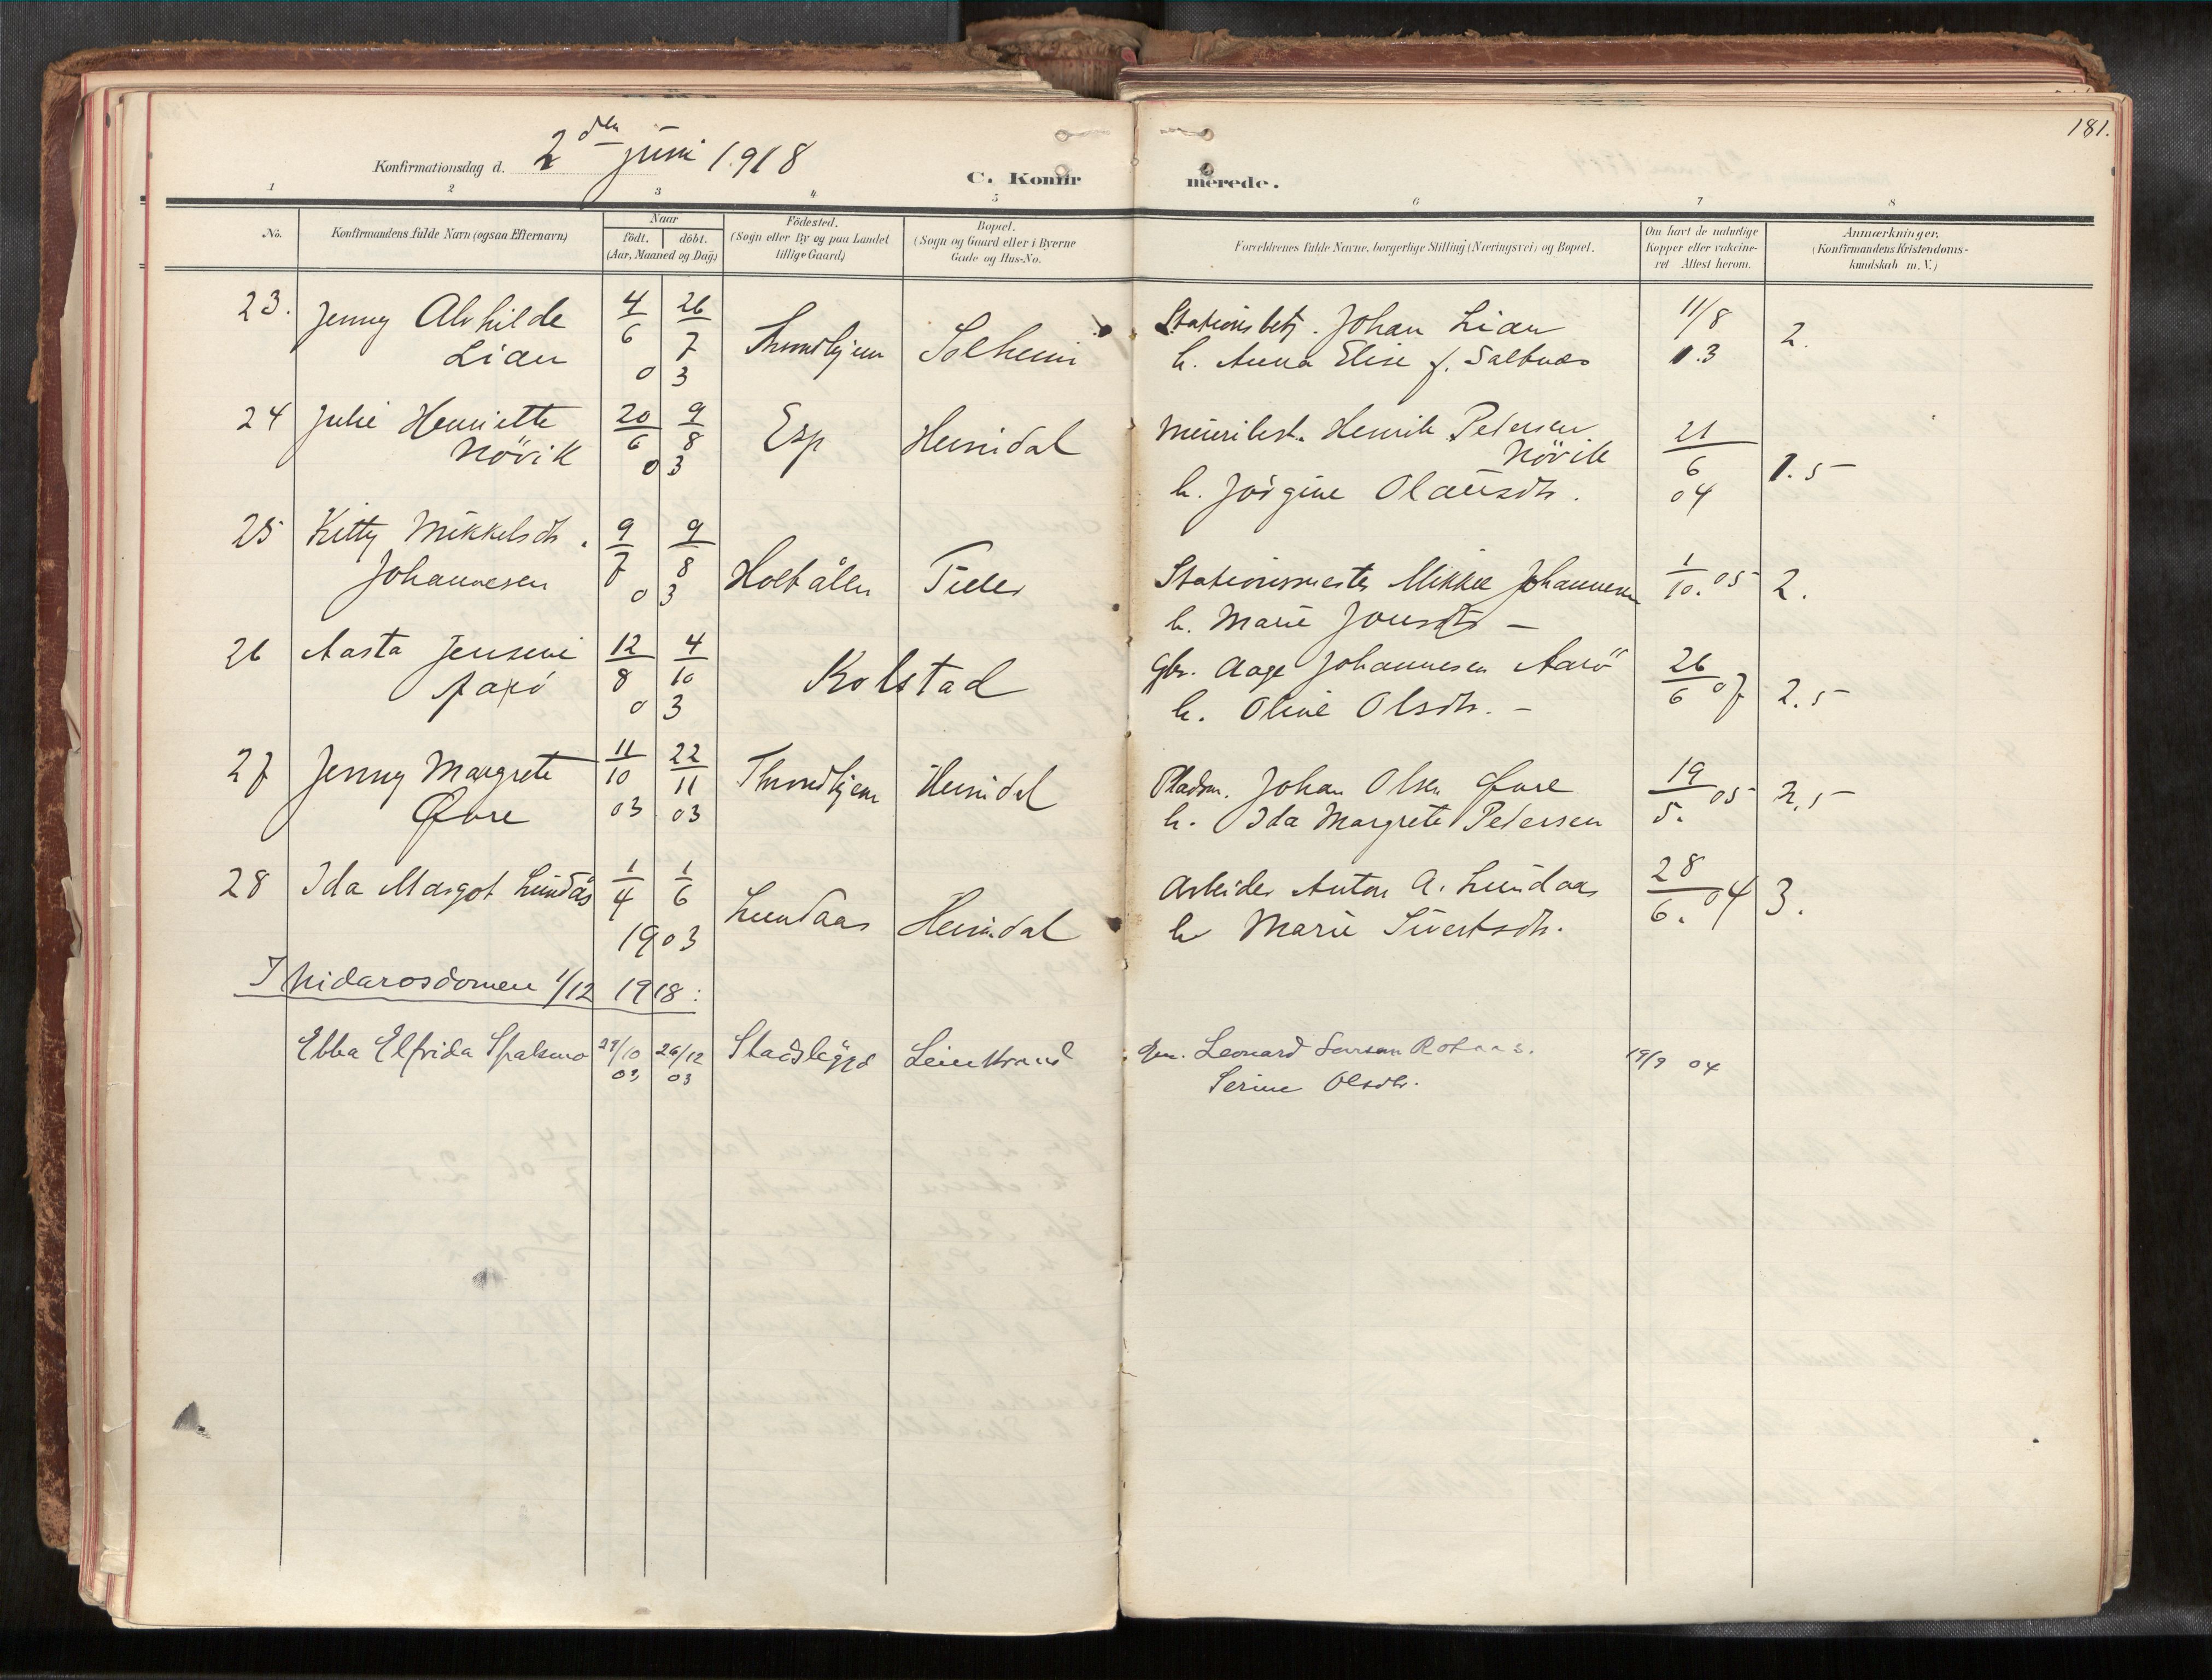 181.
Konfirmationsdag d. 2den juni 1918
C. Konfir merede.
1 2 3 4 5 6 7 8
No.
Konfirmandens fulde Navn (ogsaa Efternavn)
Naar
födt. döbt.
(Aar, Maaned og Dag)
Födested.
(Sogn eller By og paa Landet
tillige Gaard)
Bopæl.
(Sogn og Gaard eller i Byerne
Gade og Hus-No.
Forældrenes fulde Navne, borgerlige Stilling (Næringsvei) og Bopæl.
Om havt de naturlige
Kopper eller vakcine-
ret Attest herom.
Anmærkninger.
(Konfirmandens Kristendoms-
kundskab m. V.)
23. Jenny Alvhilde 4/6 26/7 Stationsbetj. Johan Lian 11/8
Lian 03 Trondhjem Solheim h. Anna Elise f. Saltnes 0.3 2.
24 Julie Henriette 20/6 9/8 Esp Heimdal Meieribest. Henrik Petersen 21/6
Növik 03 Növik 04 1.5
h. Jörgine Olausdtr.
25 Kitty Mikkelsdtr. 9/7 9/8
Johannesen 03 Holtålen Tiller Stationsmester Mikkel Johannesen 1/10.05 2.
h. Marie Jonsdtr -
26 Aasta Jensine 12/8 4/10 Kolstad Gbr. Aage Johannesen Aarö 26/6 07 2.5
03 h. Oline Olsdtr. -
27 Jenny Margrete 11/10 22/11 Trondhjem Heimdal Pladsm. Johan Olsen Øvre 19/5. 05 2,5
Øvre 03 03 h. Ida Margrete Petersen
28 Ida Margot Lundås 1/4 1/6 Lundaas Heimdal Arbeider Anton A. Lundaas 28/6. 04 3.
1903 h Marie Sivertsdtr.
I Nidarosdomen 1/12 1918:
Ebba Elfrida 27/10 26/12 Stadsbygd Leinstrand Leonard 19/9 04
03 03 Serine Olsdtr.